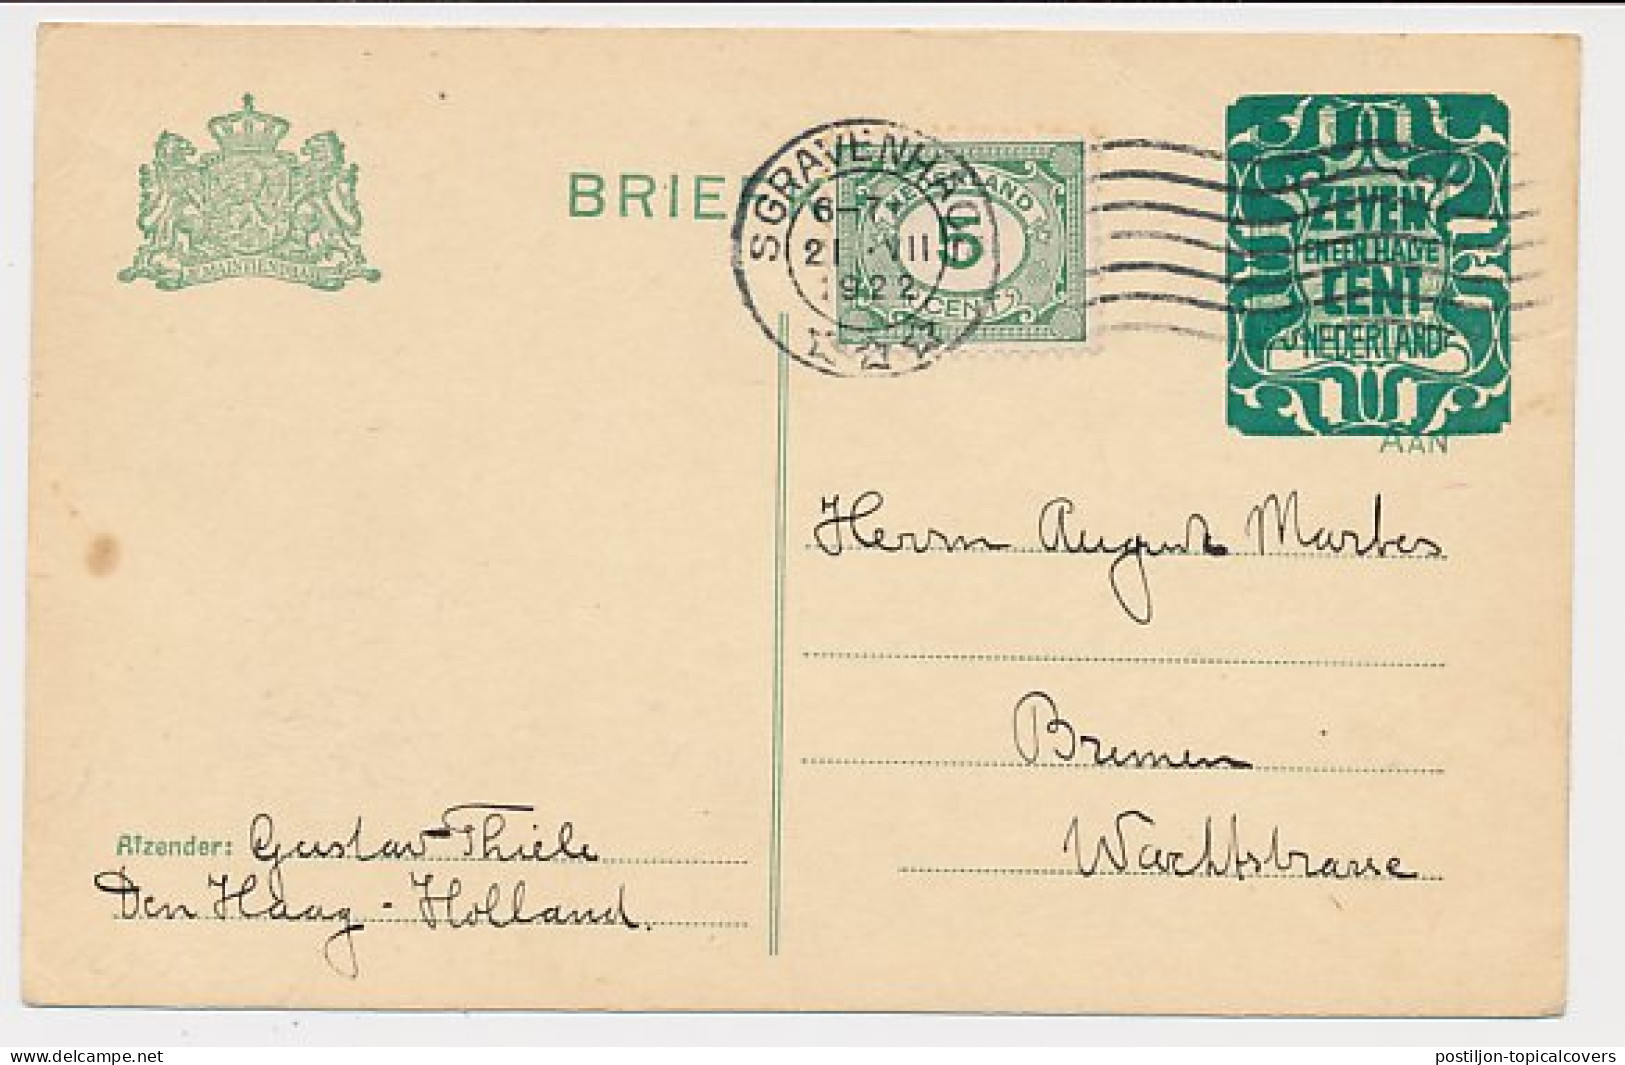 BRIE
'SGRAVENHAGE
6-7
21 VII
1922
NEDERLAND
5
CENT
ZEVEN
EN EEN HALVE
CENT
NEDERLAND
AAN
JE MAINTIENDRAI
Herrn August Marbes
Bremen
Wachtstrasse
Afzender: Gustav Thiele
Den Haag - Holland.
delcampe.net
postiljon-topicalcovers